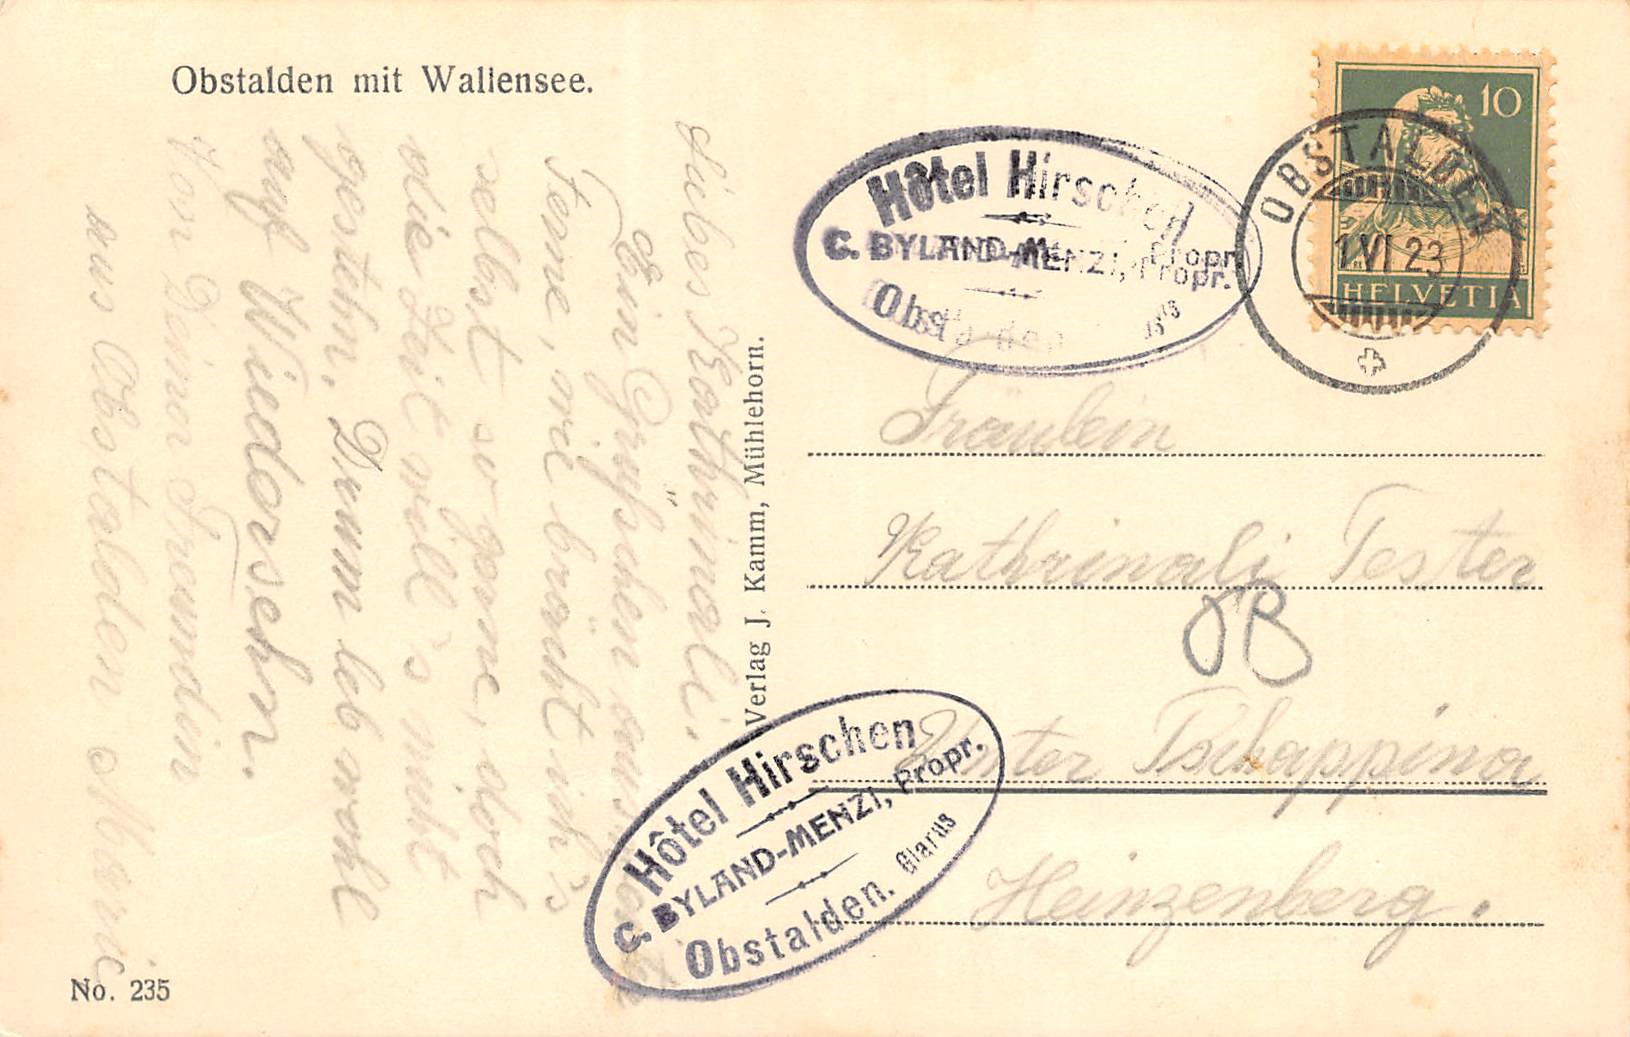 Obstalden mit Wallensee.
Liebes Kathrinali!
Ein Grüßchen aus der
Ferne, wie bräucht ich's
selbst so gerne, doch
die Zeit will's nicht
gestehn, Drum leb wohl
auf Wiedersehn.
Von Deiner Freundin
aus Obstalden Marie
No. 235
Verlag J. Kamm, Mühlehorn.
Hôtel Hirschen
C. BYLAND-MENZI, Propr.
Obstalden
10
HELVETIA
OBSTALDEN
1 VI 23
Fräulein
Kathrinali Tester
Unter Tschappina
Heinzenberg.
Hôtel Hirschen
C. BYLAND-MENZI, Propr.
Obstalden. Glarus